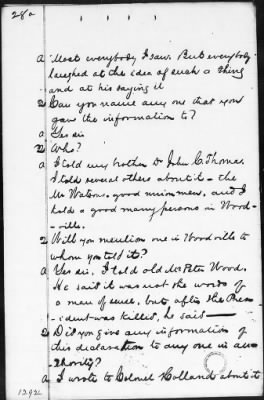 280
A Most everybody I saw. But everybody
laughed at the idea of such a thing
and at his saying it
Q Can you name any one that you
gave the information to?
A Yes sir
Q Who?
A I told my brother Dr John C. Thomas.
I told several others about it - the
Mr Watson, good union men, and I
told a good many persons in Wood-
ville.
Q Will you mention one in Woodville to
whom you told it?
A Yes sir. I told old Mr Peter Wood.
He said it was not the words of
a man of sense, but after the Pres-
ident was killed, he said —
Q Did you give any information of
this declaration to any one in au-
thority?
A I wrote to Colonel Holland about it